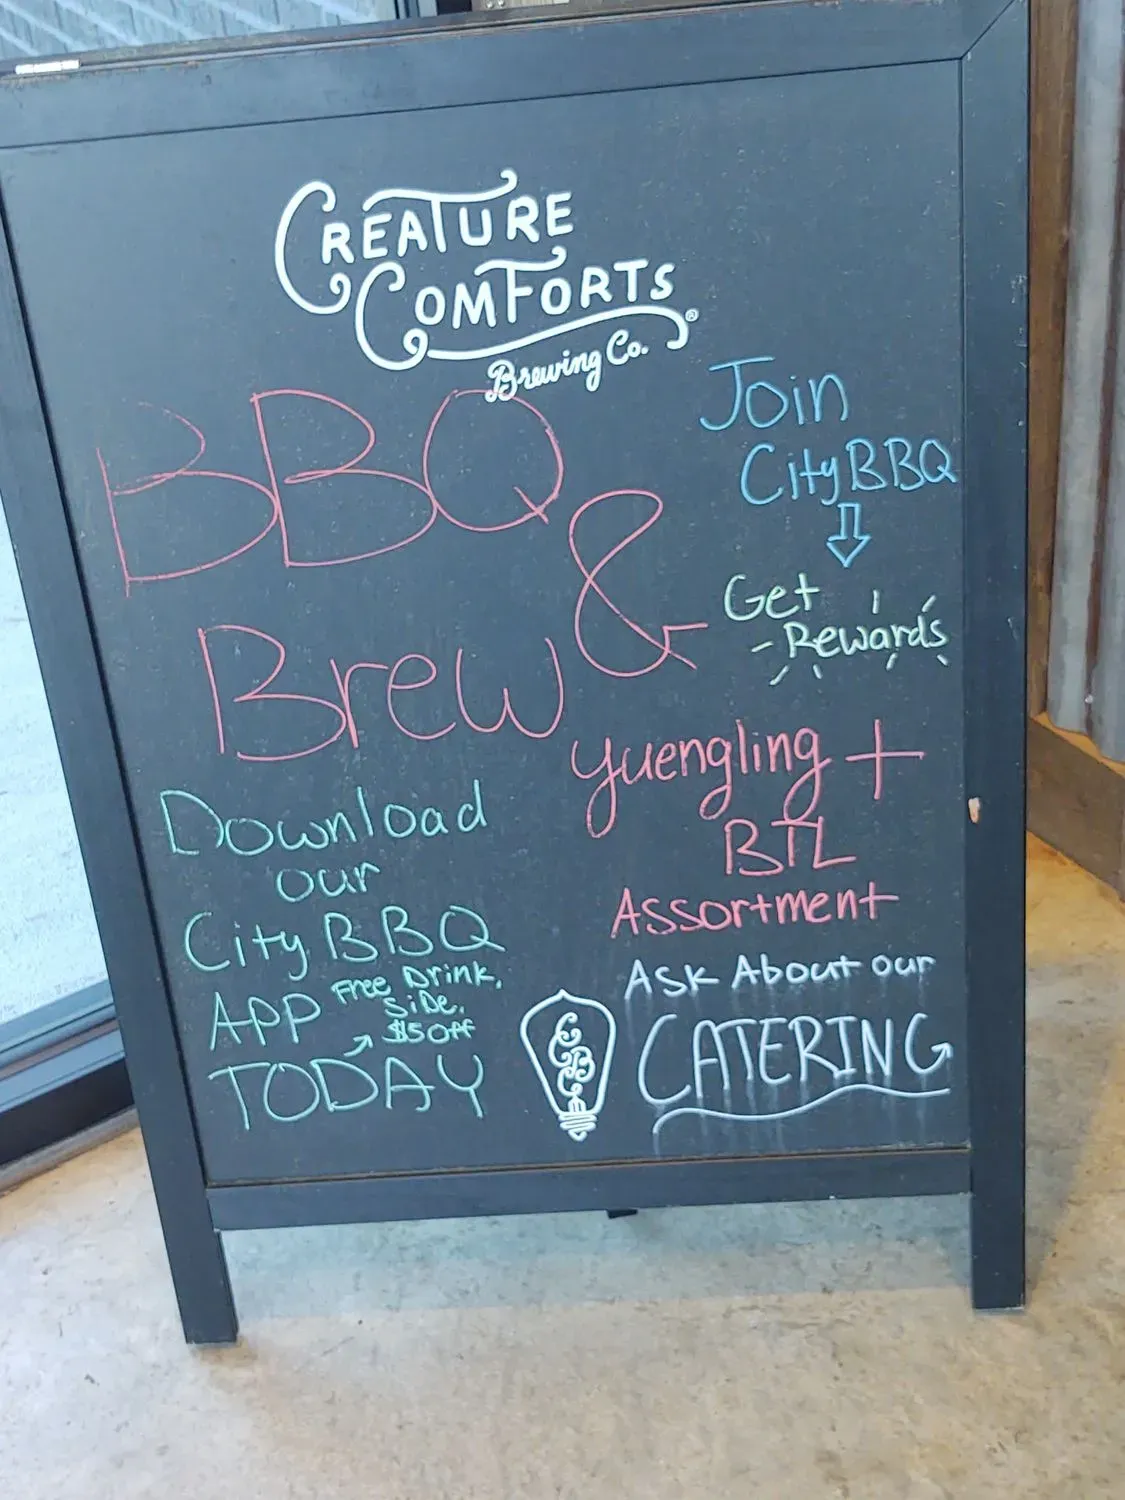 CREATURE
COMFORTS
Brewing Co.
BBQ
&
Brew
Join
City BBQ
Get
Rewards
Yuengling +
BTL
Assortment
Download
our
City BBQ
App
Free Drink,
Side,
$5 off
TODAY
Ask About our
CATERING
CCBC